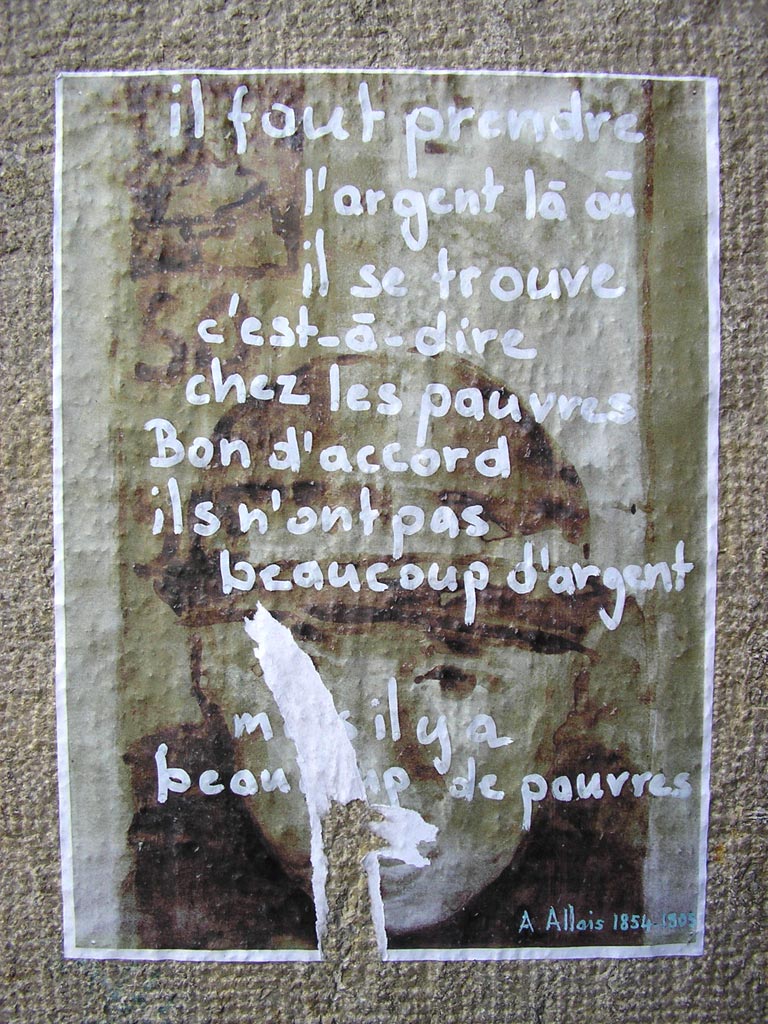 il faut prendre
l'argent là où
il se trouve
c'est-à-dire
chez les pauvres
Bon d'accord
ils n'ont pas
beaucoup d'argent
il y a
de pauvres
A Allais 1854-1905